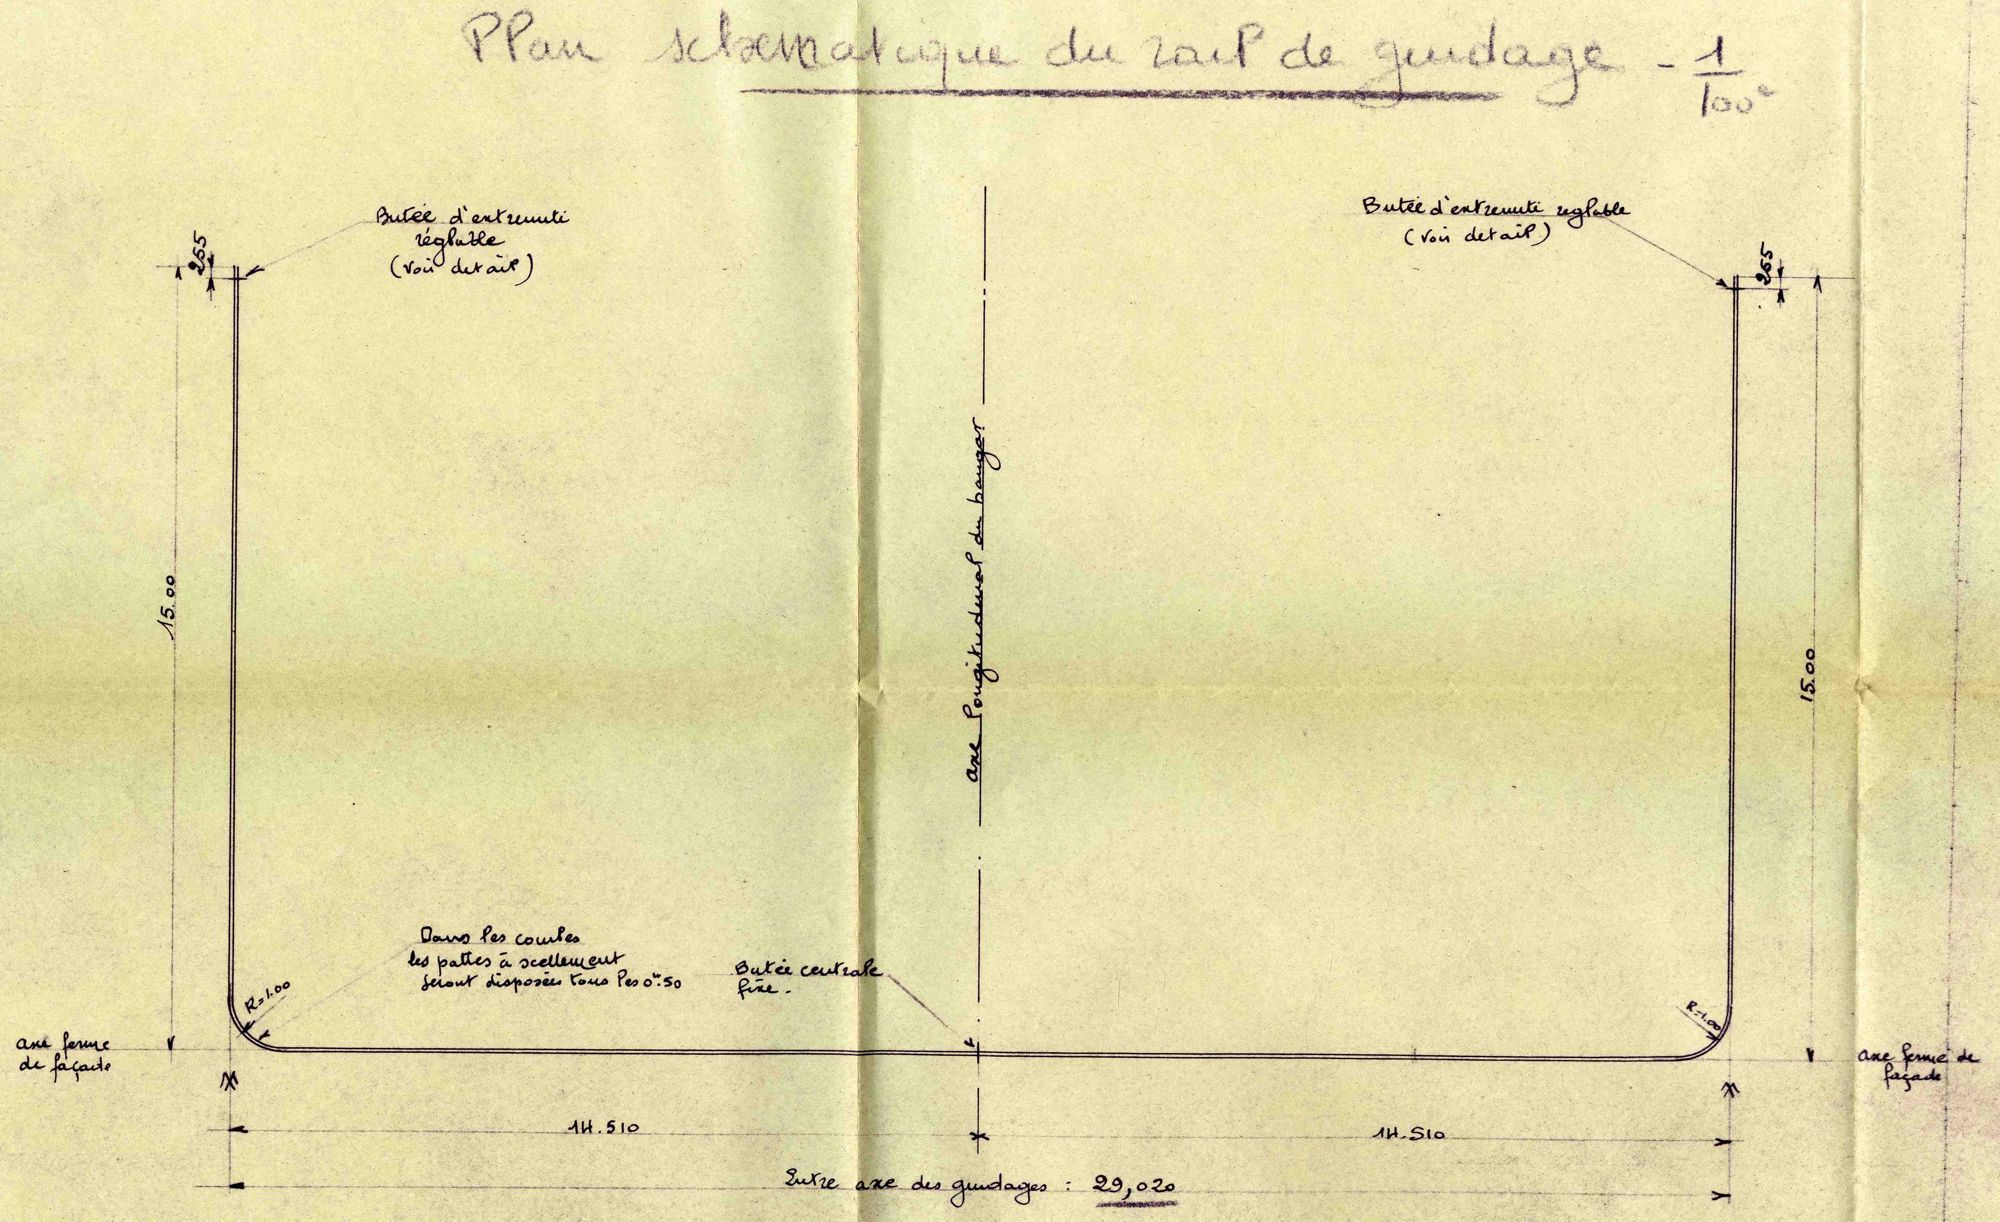 Plan schematique du rail de guidage - 1/100e
Butée d'extremité
réglable
(voir detail)
Butée d'extremité reglable
(voir detail)
265
265
axe longitudinal du hangar
15.00
15.00
Dans les courbes
les pattes à scellement
seront disposées tous les 0m.50
Butée centrale
fixe.
R=1.00
R=1.00
axe ferme
de façade
axe ferme de
façade
14.510
14.510
Entre axe des guidages : 29,020